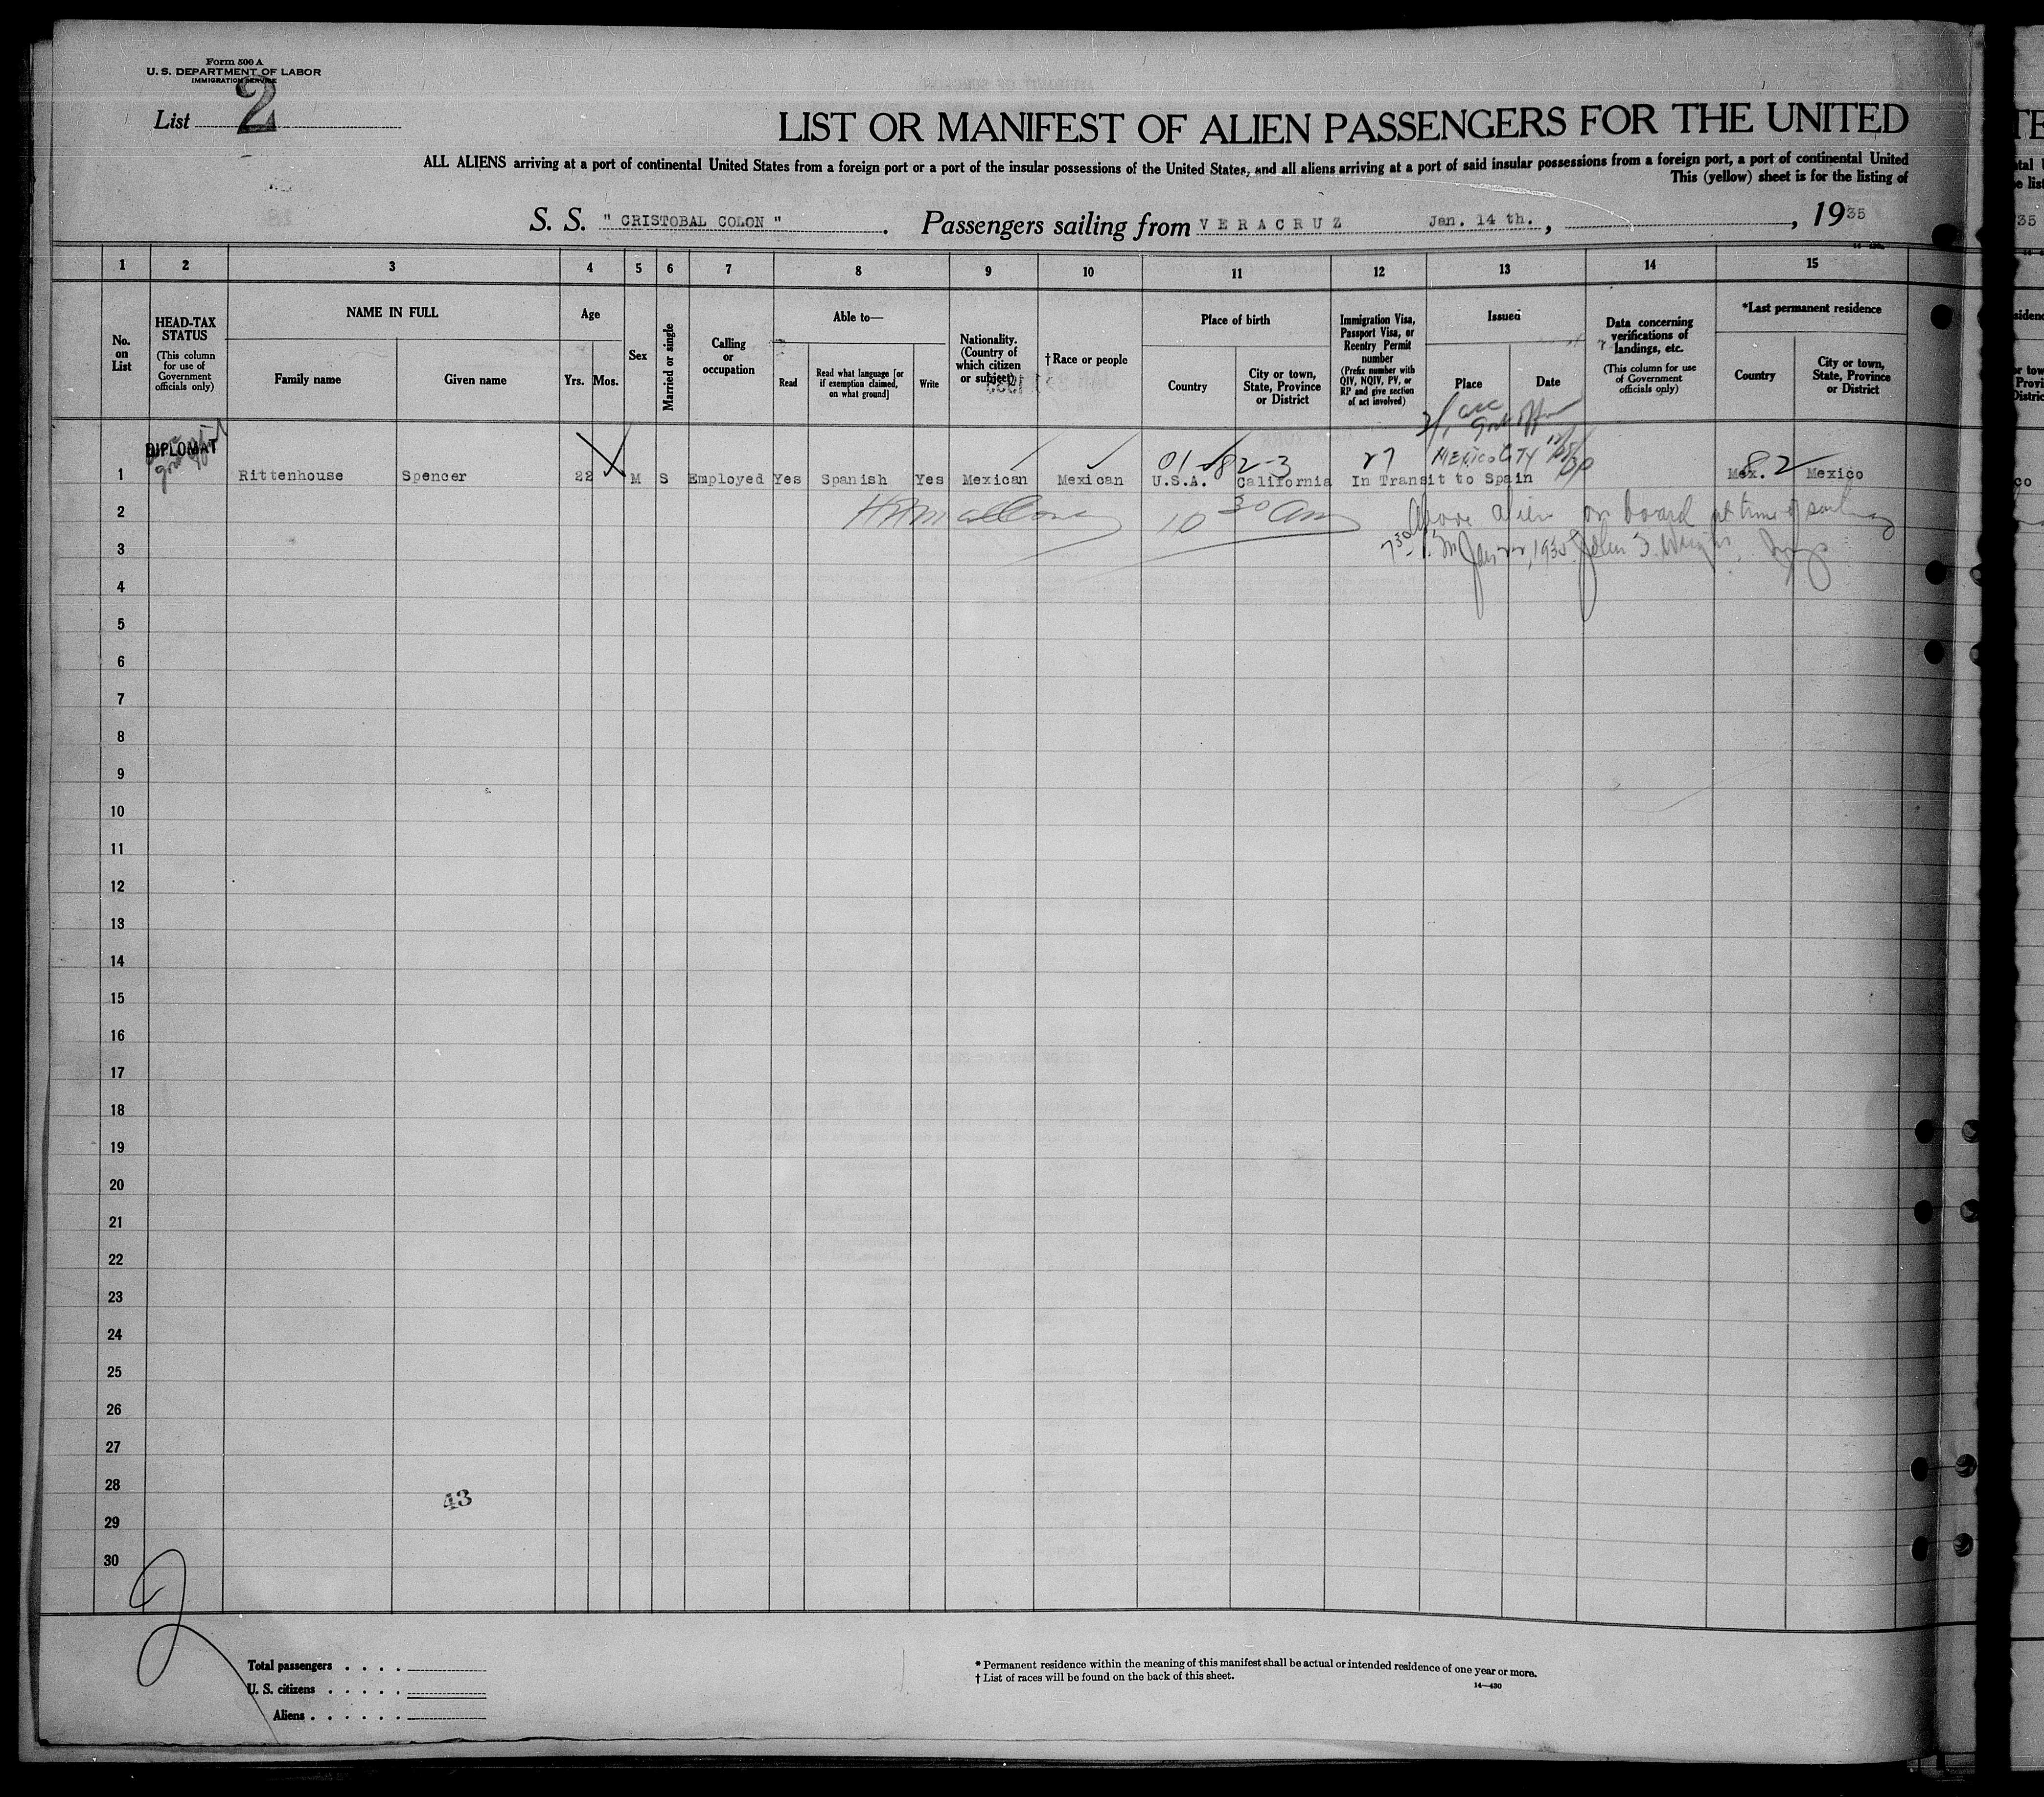 Form 500 A
U. S. DEPARTMENT OF LABOR
IMMIGRATION SERVICE
List 2
LIST OR MANIFEST OF ALIEN PASSENGERS FOR THE UNITED
ALL ALIENS arriving at a port of continental United States from a foreign port or a port of the insular possessions of the United States, and all aliens arriving at a port of said insular possessions from a foreign port, a port of continental United
This (yellow) sheet is for the listing of
S. S. " CRISTOBAL COLON " . Passengers sailing from VERACRUZ Jan. 14 th. , , 1935
1 2 3 4 5 6 7 8 9 10 11 12 13 14 15
No. on List
HEAD-TAX STATUS
(This column for use of Government officials only)
NAME IN FULL
Family name
Given name
Age
Yrs.
Mos.
Sex
Married or single
Calling or occupation
Able to—
Read
Read what language [or if exemption claimed, on what ground]
Write
Nationality. (Country of which citizen or subject)
†Race or people
Place of birth
Country
City or town, State, Province or District
Immigration Visa, Passport Visa, or Reentry Permit number
(Prefix number with QIV, NQIV, PV, or RP and give section of act involved)
Issued
Place
Date
Data concerning verifications of landings, etc.
(This column for use of Government officials only)
*Last permanent residence
Country
City or town, State, Province or District
DIPLOMAT
01 82-3 27 Mexico City 82
1 Rittenhouse Spencer 22 M S Employed Yes Spanish Yes Mexican Mexican U.S.A. California In Transit to Spain Mex. Mexico
2 10 30 am Above alien on board at time of sailing
3 7 30 P.M. Jan 1935 John
4
5
6
7
8
9
10
11
12
13
14
15
16
17
18
19
20
21
22
23
24
25
26
27
28
43
29
30
Total passengers . . . .
U. S. citizens . . . . .
Aliens . . . . . .
* Permanent residence within the meaning of this manifest shall be actual or intended residence of one year or more.
† List of races will be found on the back of this sheet.
14—430